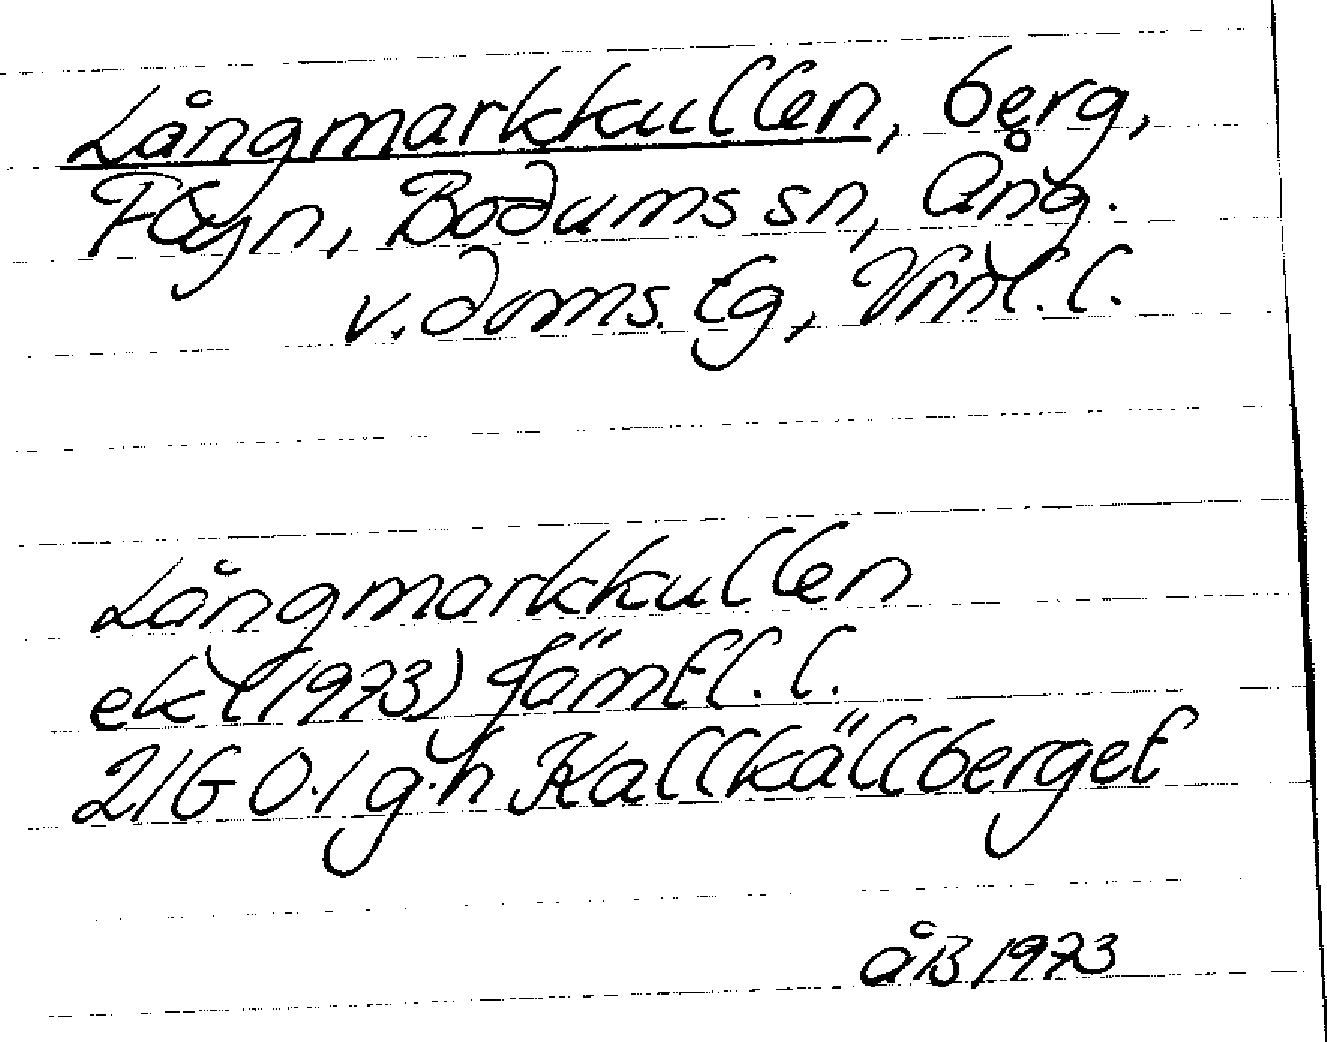 Långmarkkullen, berg,
Flyn, Bodums sn, Ång.
v. doms. lg, Vrnl. l.
Långmarkkullen
ek l (1973) Jämtl. l.
21G 0.1 g.h Kallkällberget
åB 1973